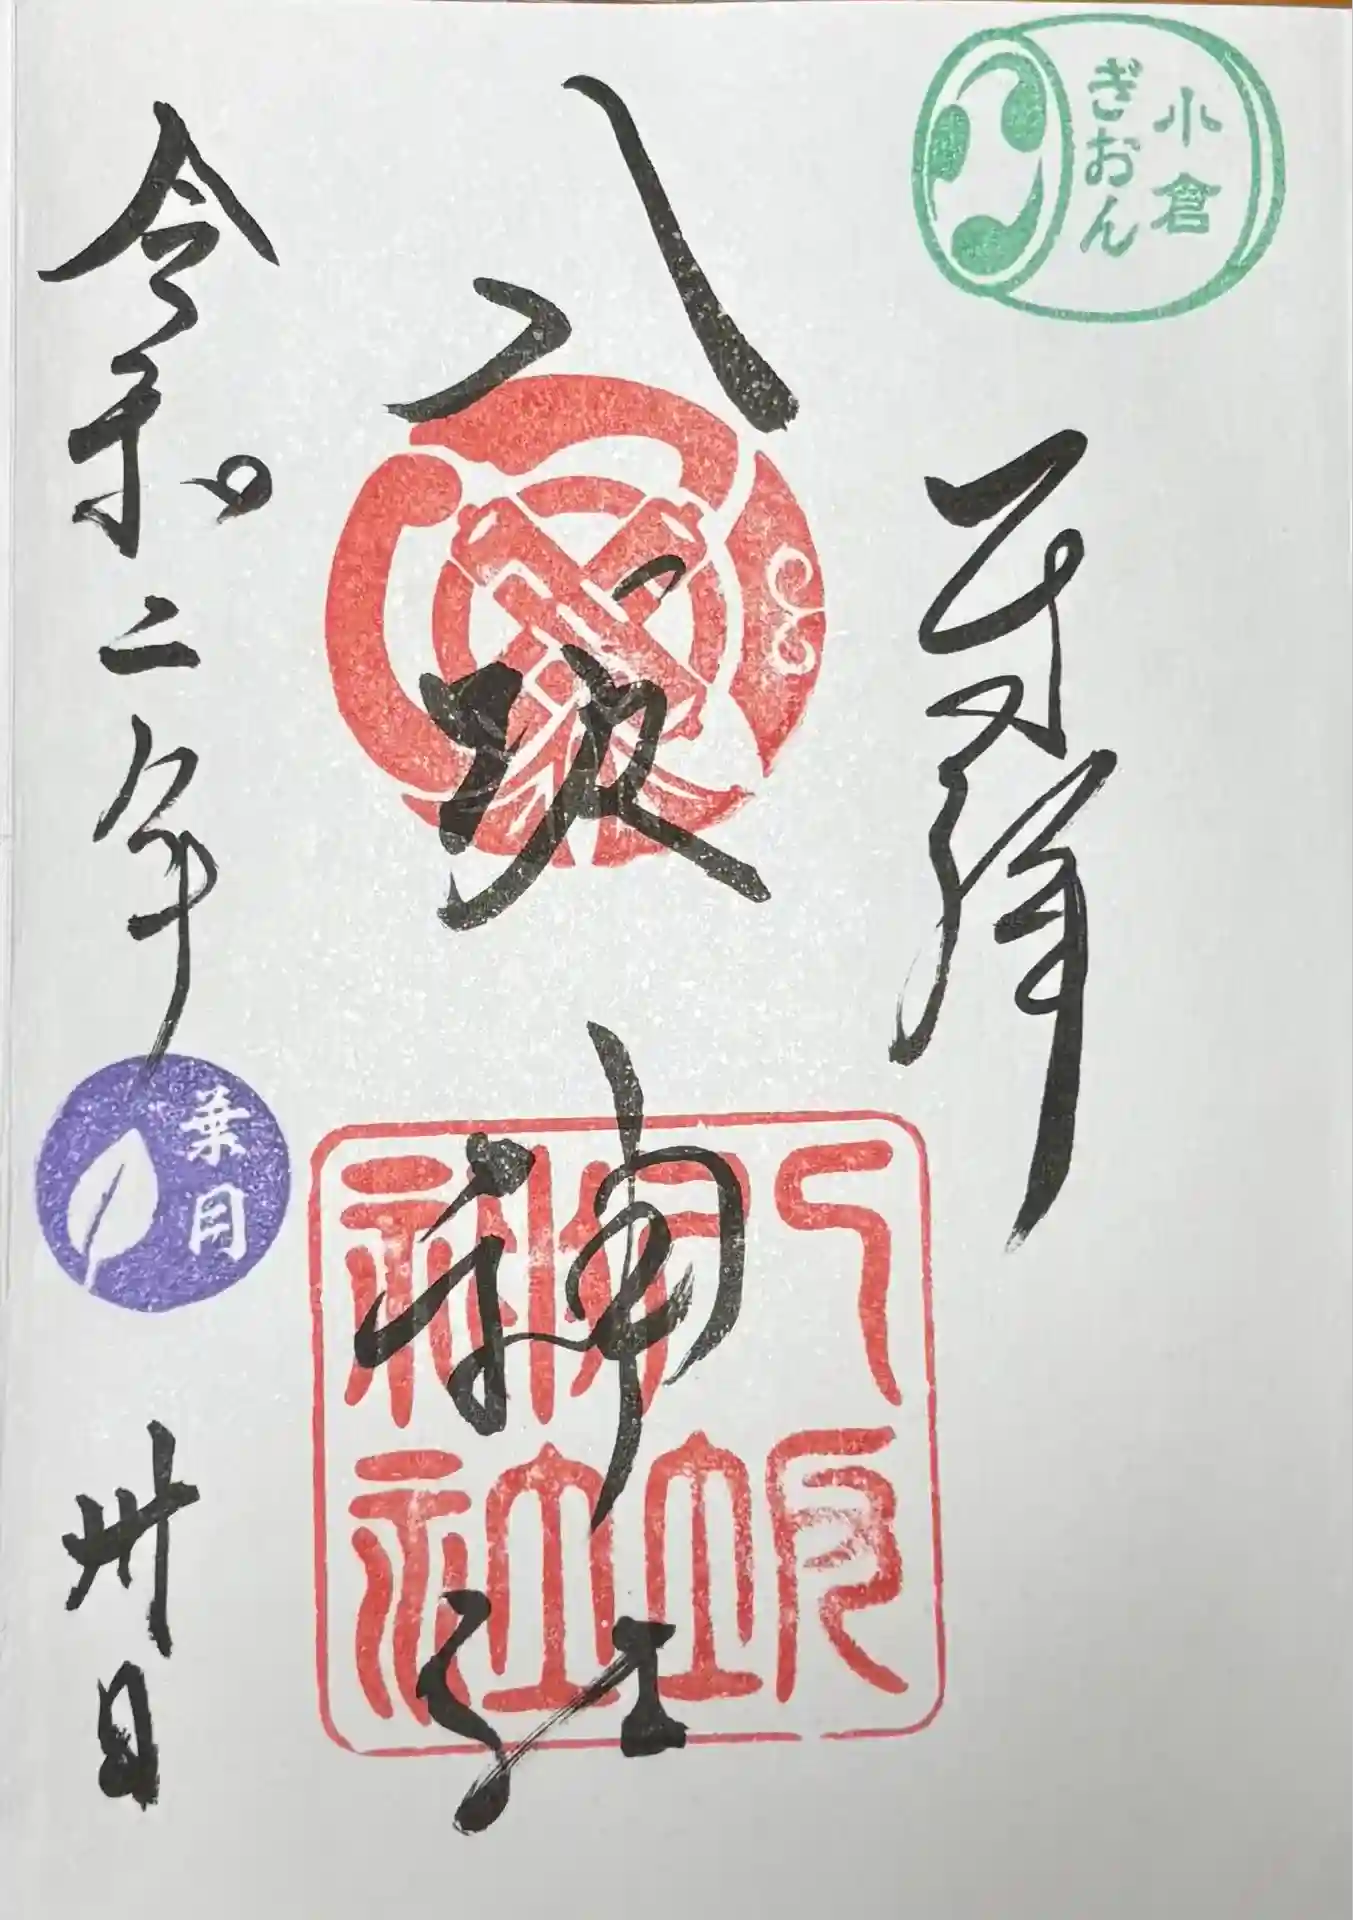 小倉
ぎおん
奉拝
八坂神社
八坂神社
令和二年
葉月
卅日